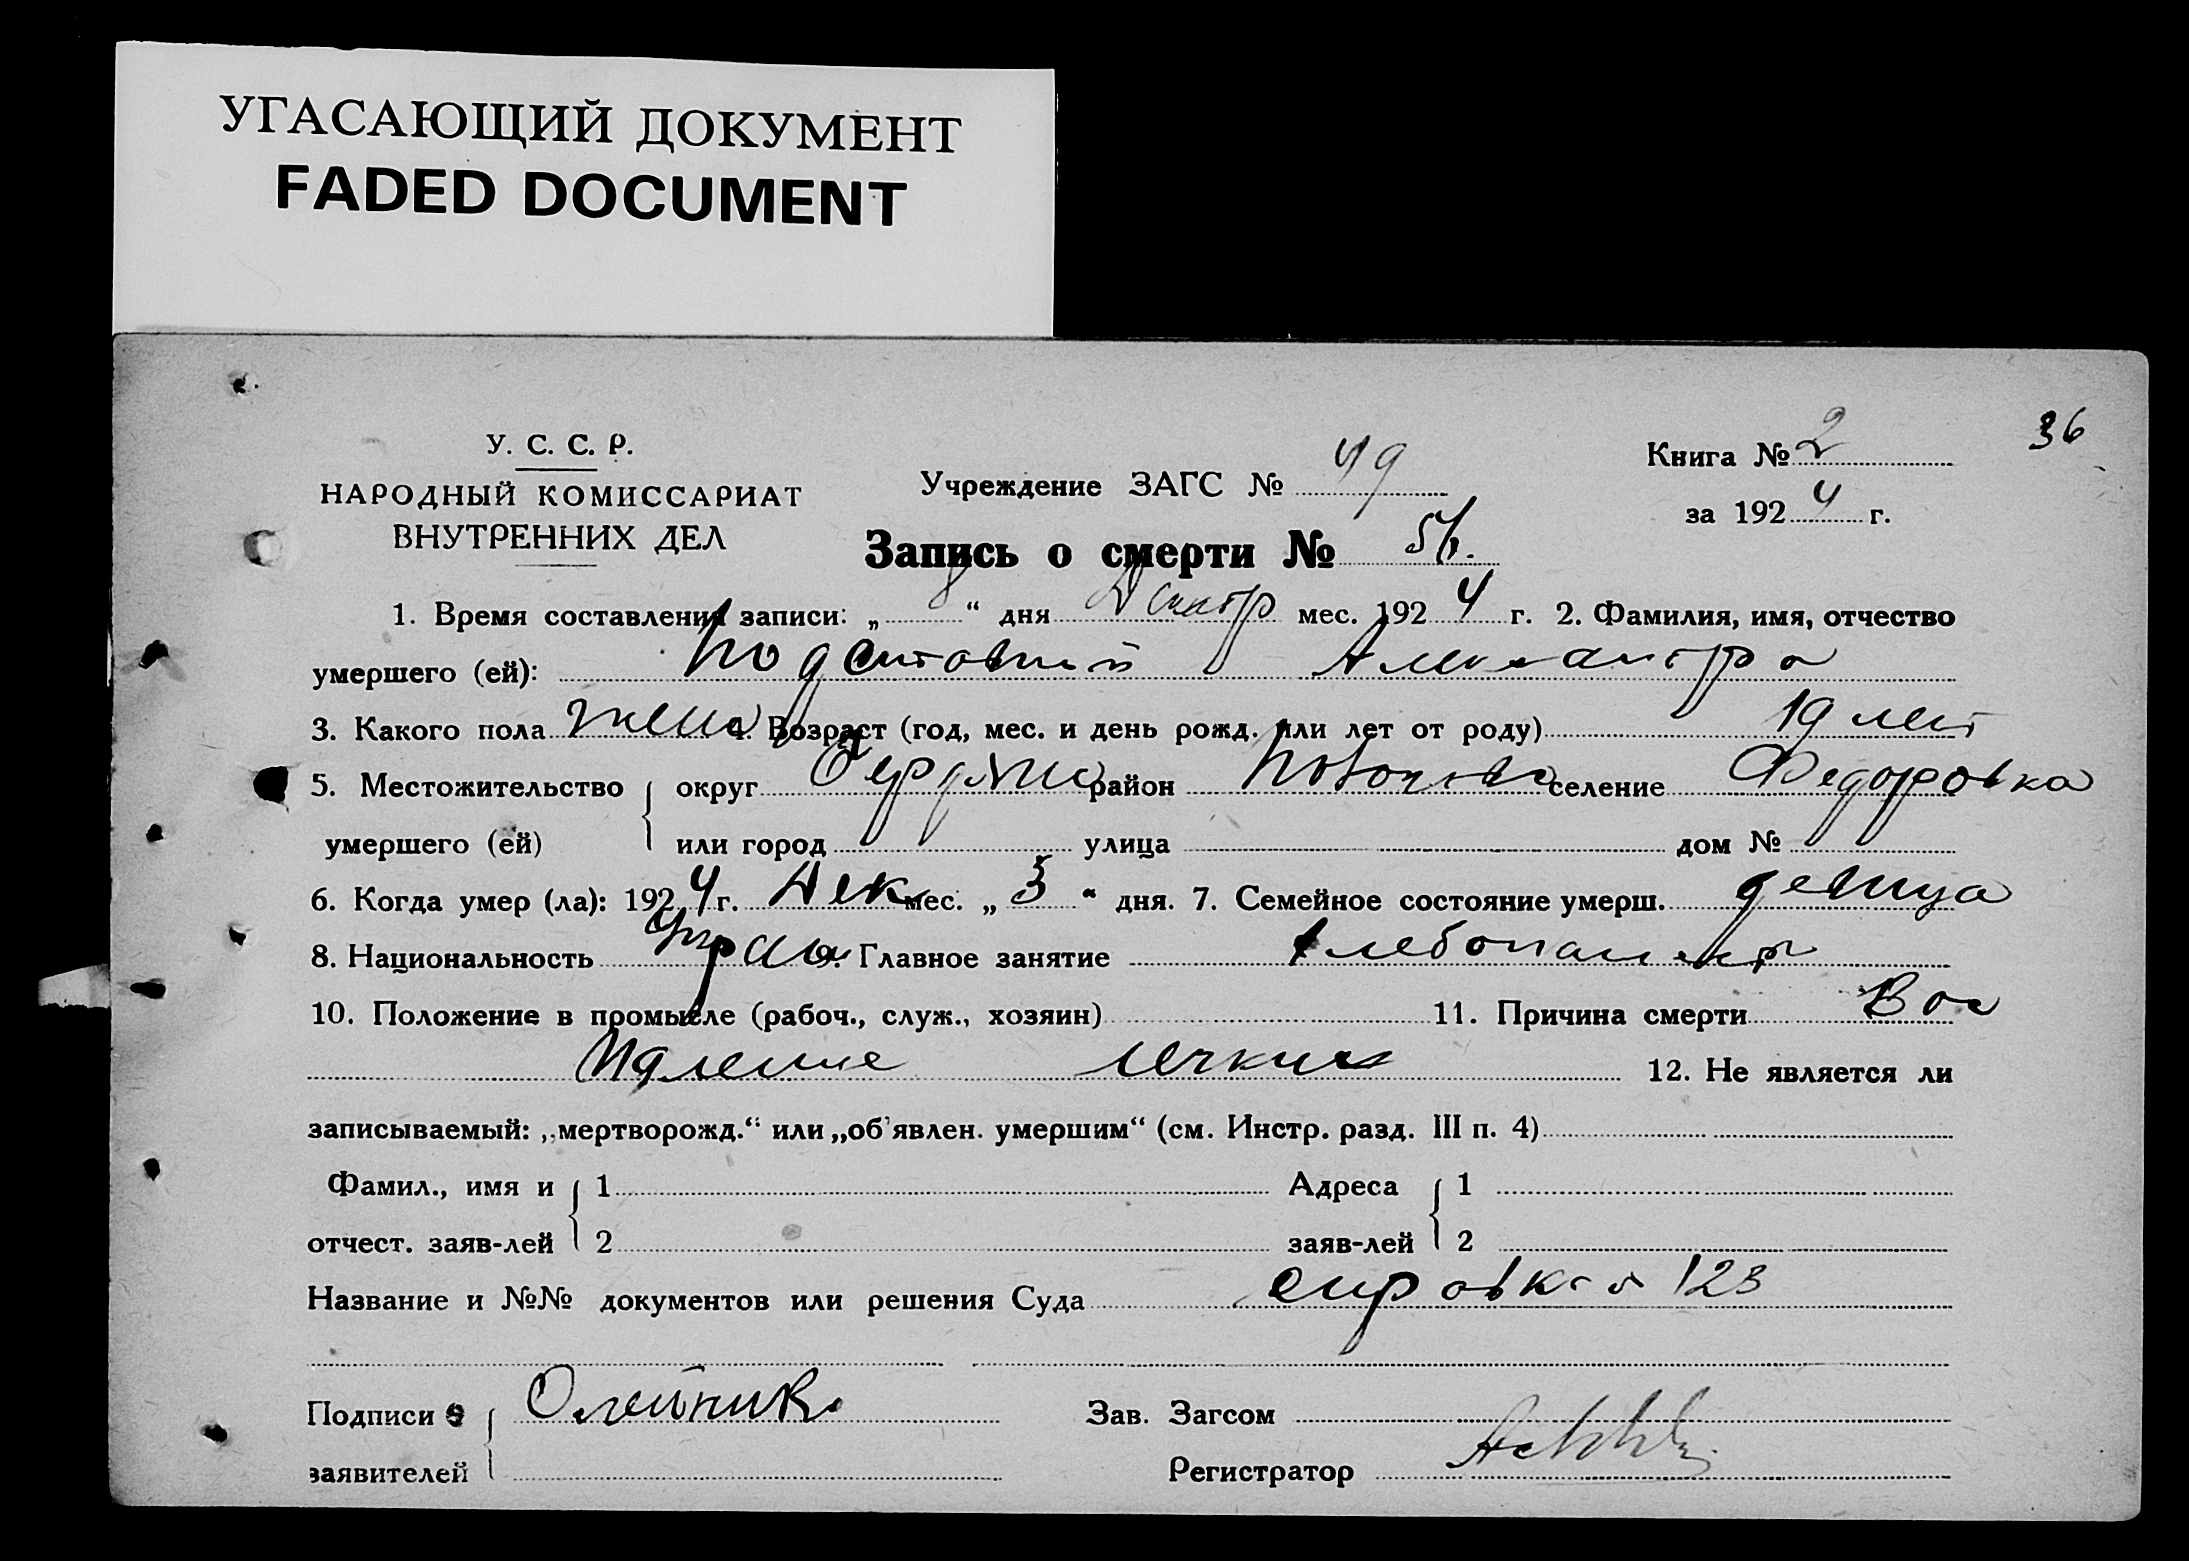 УГАСАЮЩИЙ ДОКУМЕНТ
FADED DOCUMENT
36
У. С. С. Р.
НАРОДНЫЙ КОМИССАРИАТ
ВНУТРЕННИХ ДЕЛ
Учреждение ЗАГС № 49
Книга № 2
за 1924 г.
Запись о смерти №
1. Время составления записи: „8“ дня мес. 1924 г. 2. Фамилия, имя, отчество
умершего (ей): Александра
3. Какого пола жен 4. Возраст (год, мес. и день рожд. или лет от роду) 19 лет
5. Местожительство округ район селение Федоровка
умершего (ей) или город улица дом №
6. Когда умер (ла): 1924 г. Дек мес. „ 3 “ дня. 7. Семейное состояние умерш. девица
8. Национальность 9. Главное занятие
10. Положение в промысле (рабоч., служ., хозяин) 11. Причина смерти Вос
12. Не является ли
записываемый: „мертворожд.“ или „об'явлен. умершим“ (см. Инстр. разд. III п. 4)
Фамил., имя и 1 Адреса 1
отчест. заяв-лей 2 заяв-лей 2
Название и №№ документов или решения Суда 123
Подписи Зав. Загсом
заявителей Регистратор